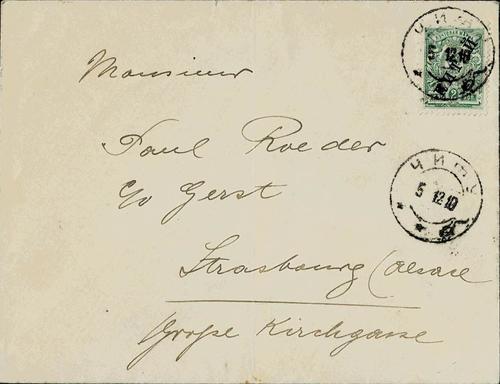 ЧИФУ
5 12 10
Monsieur
Paul Roeder
c/o Gerst
ЧИФУ
5 12 10
Strasbourg (Alsace
Große Kirchgasse